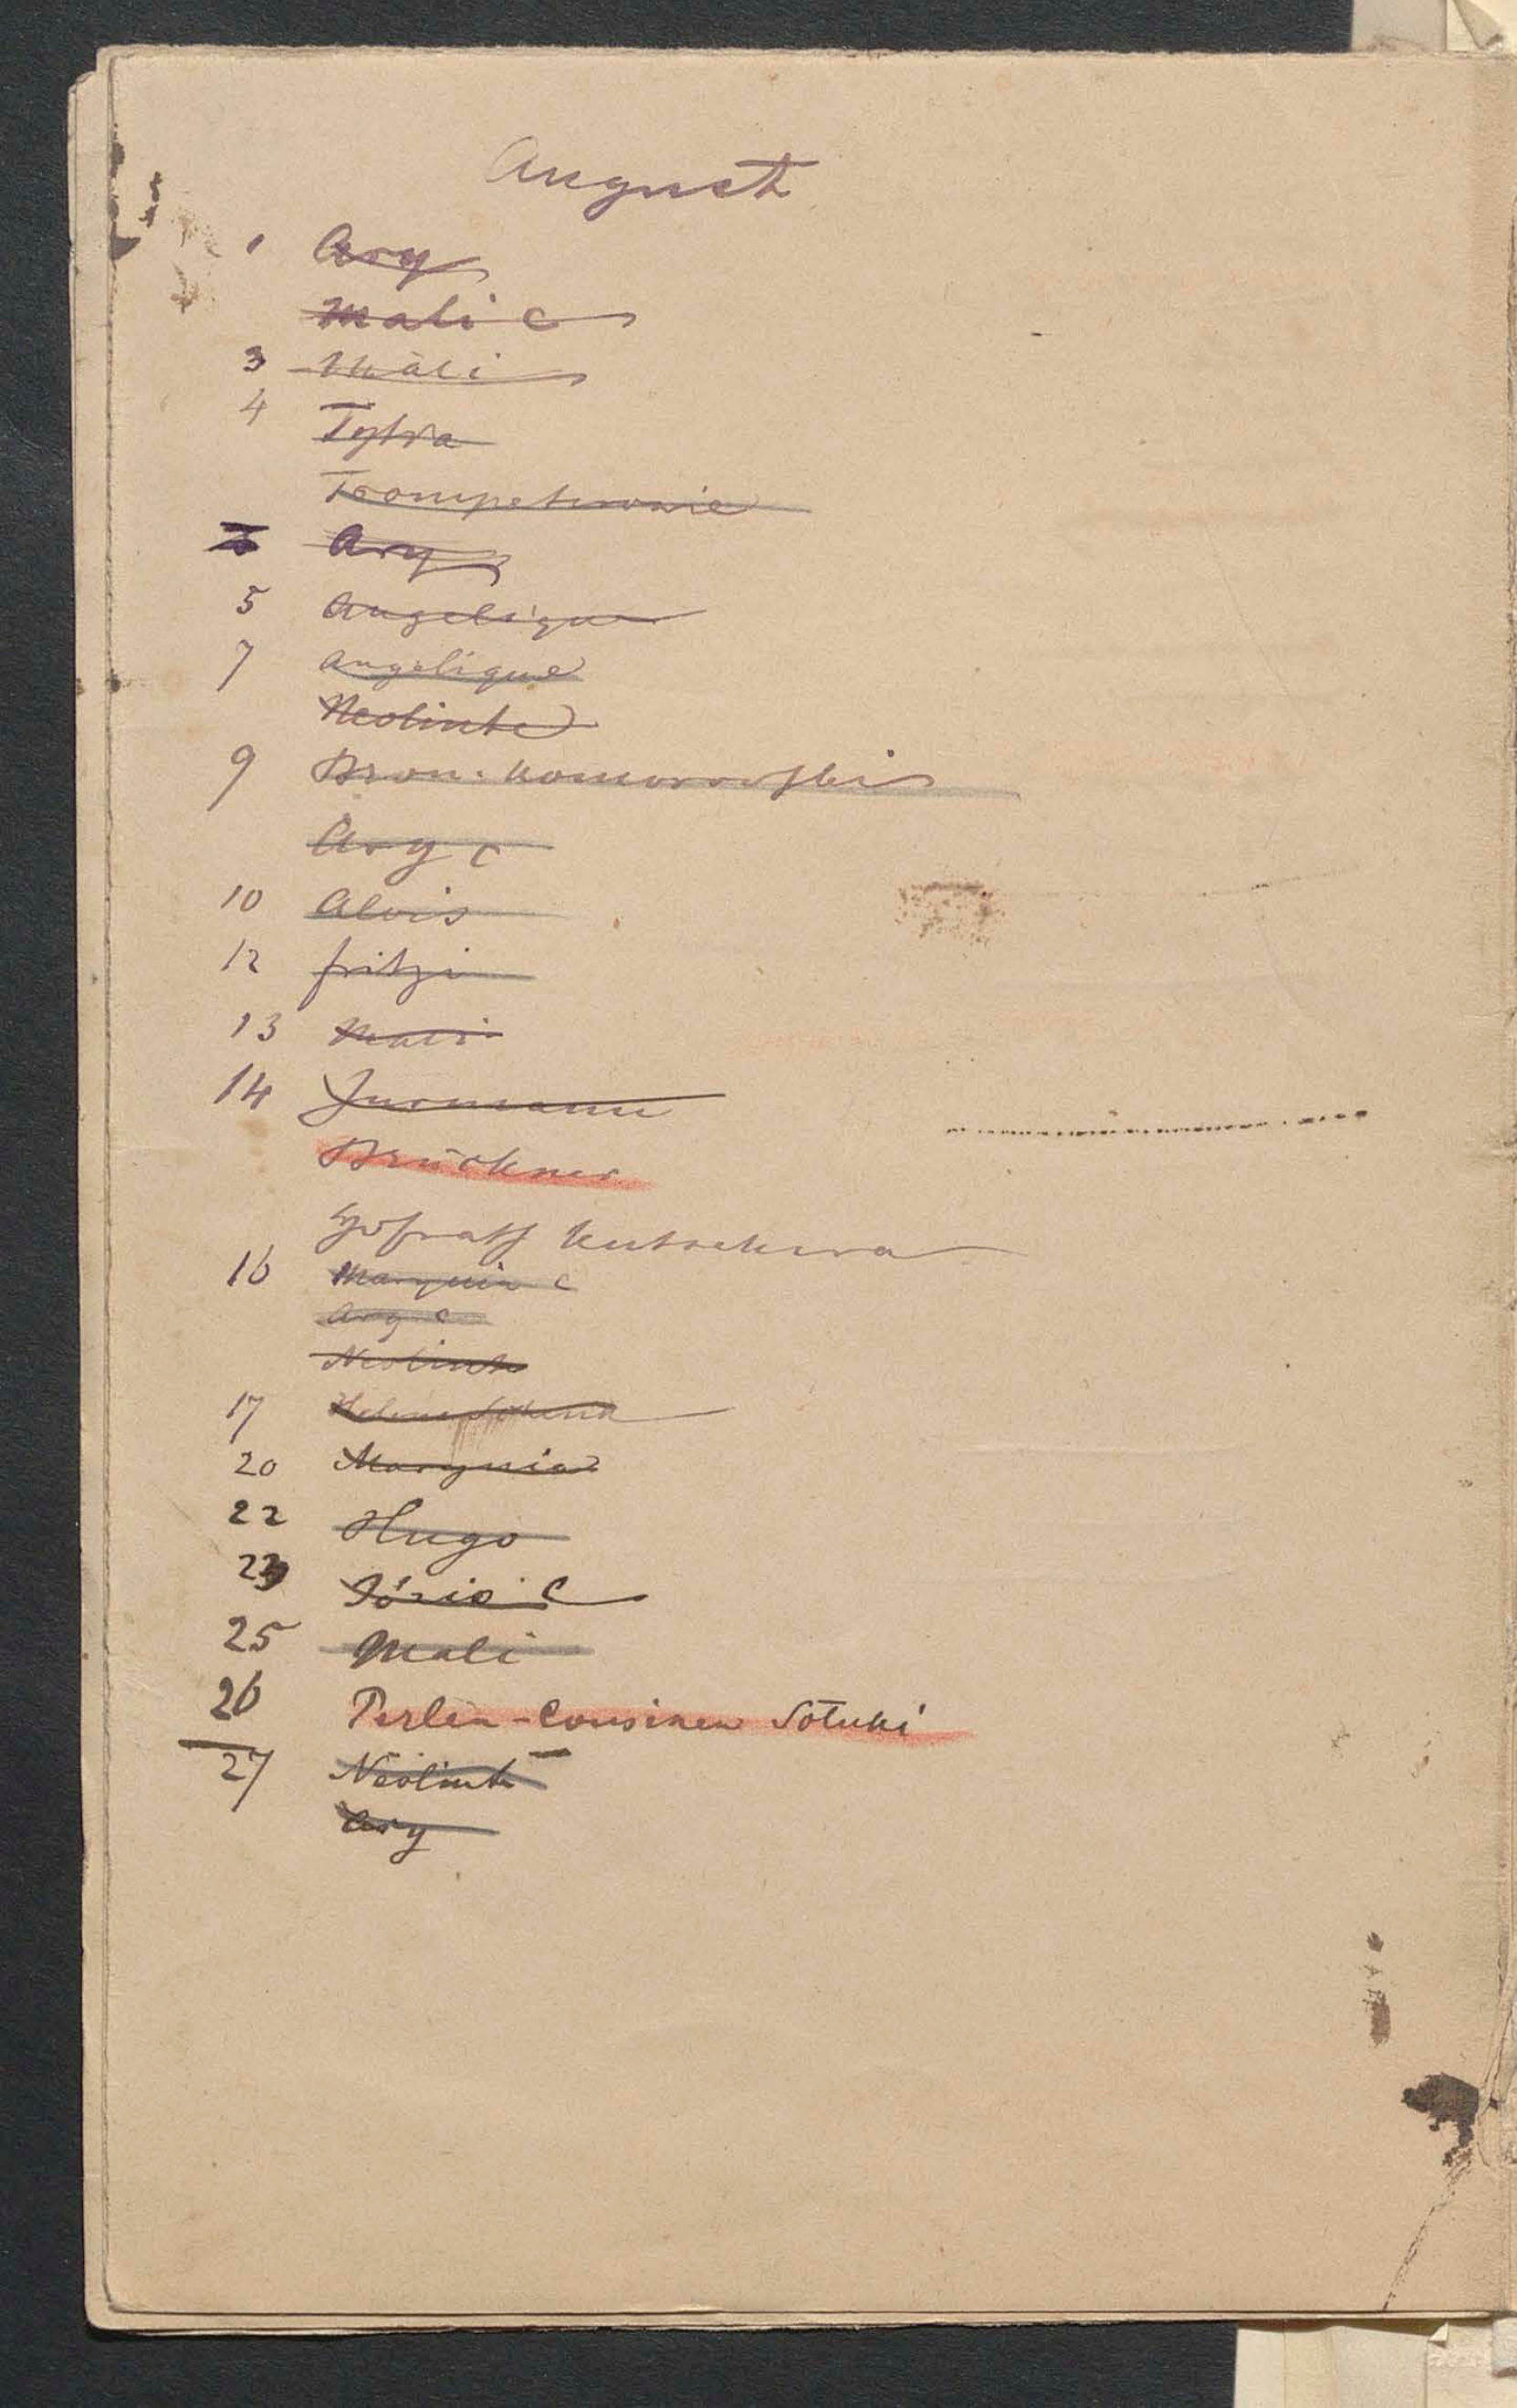 August
1 Ary
Mali c
3 Mali
4 Tylka
Trompeterowie
Ary
5 Angelique
7 Angelique
Neolinke
9 Bron. Komorowski
Ary c
10 Alois
12 fritzi
13 Mali
14 Jurmann
Brückner
Hofrath Kutschera
16 Marynia c
Ary c
Neolinke
17 Helene
20 Marynia
22 Hugo
23 Józio c
25 Mali
26 Perlen-Cousinen
27 Neolink
Ary